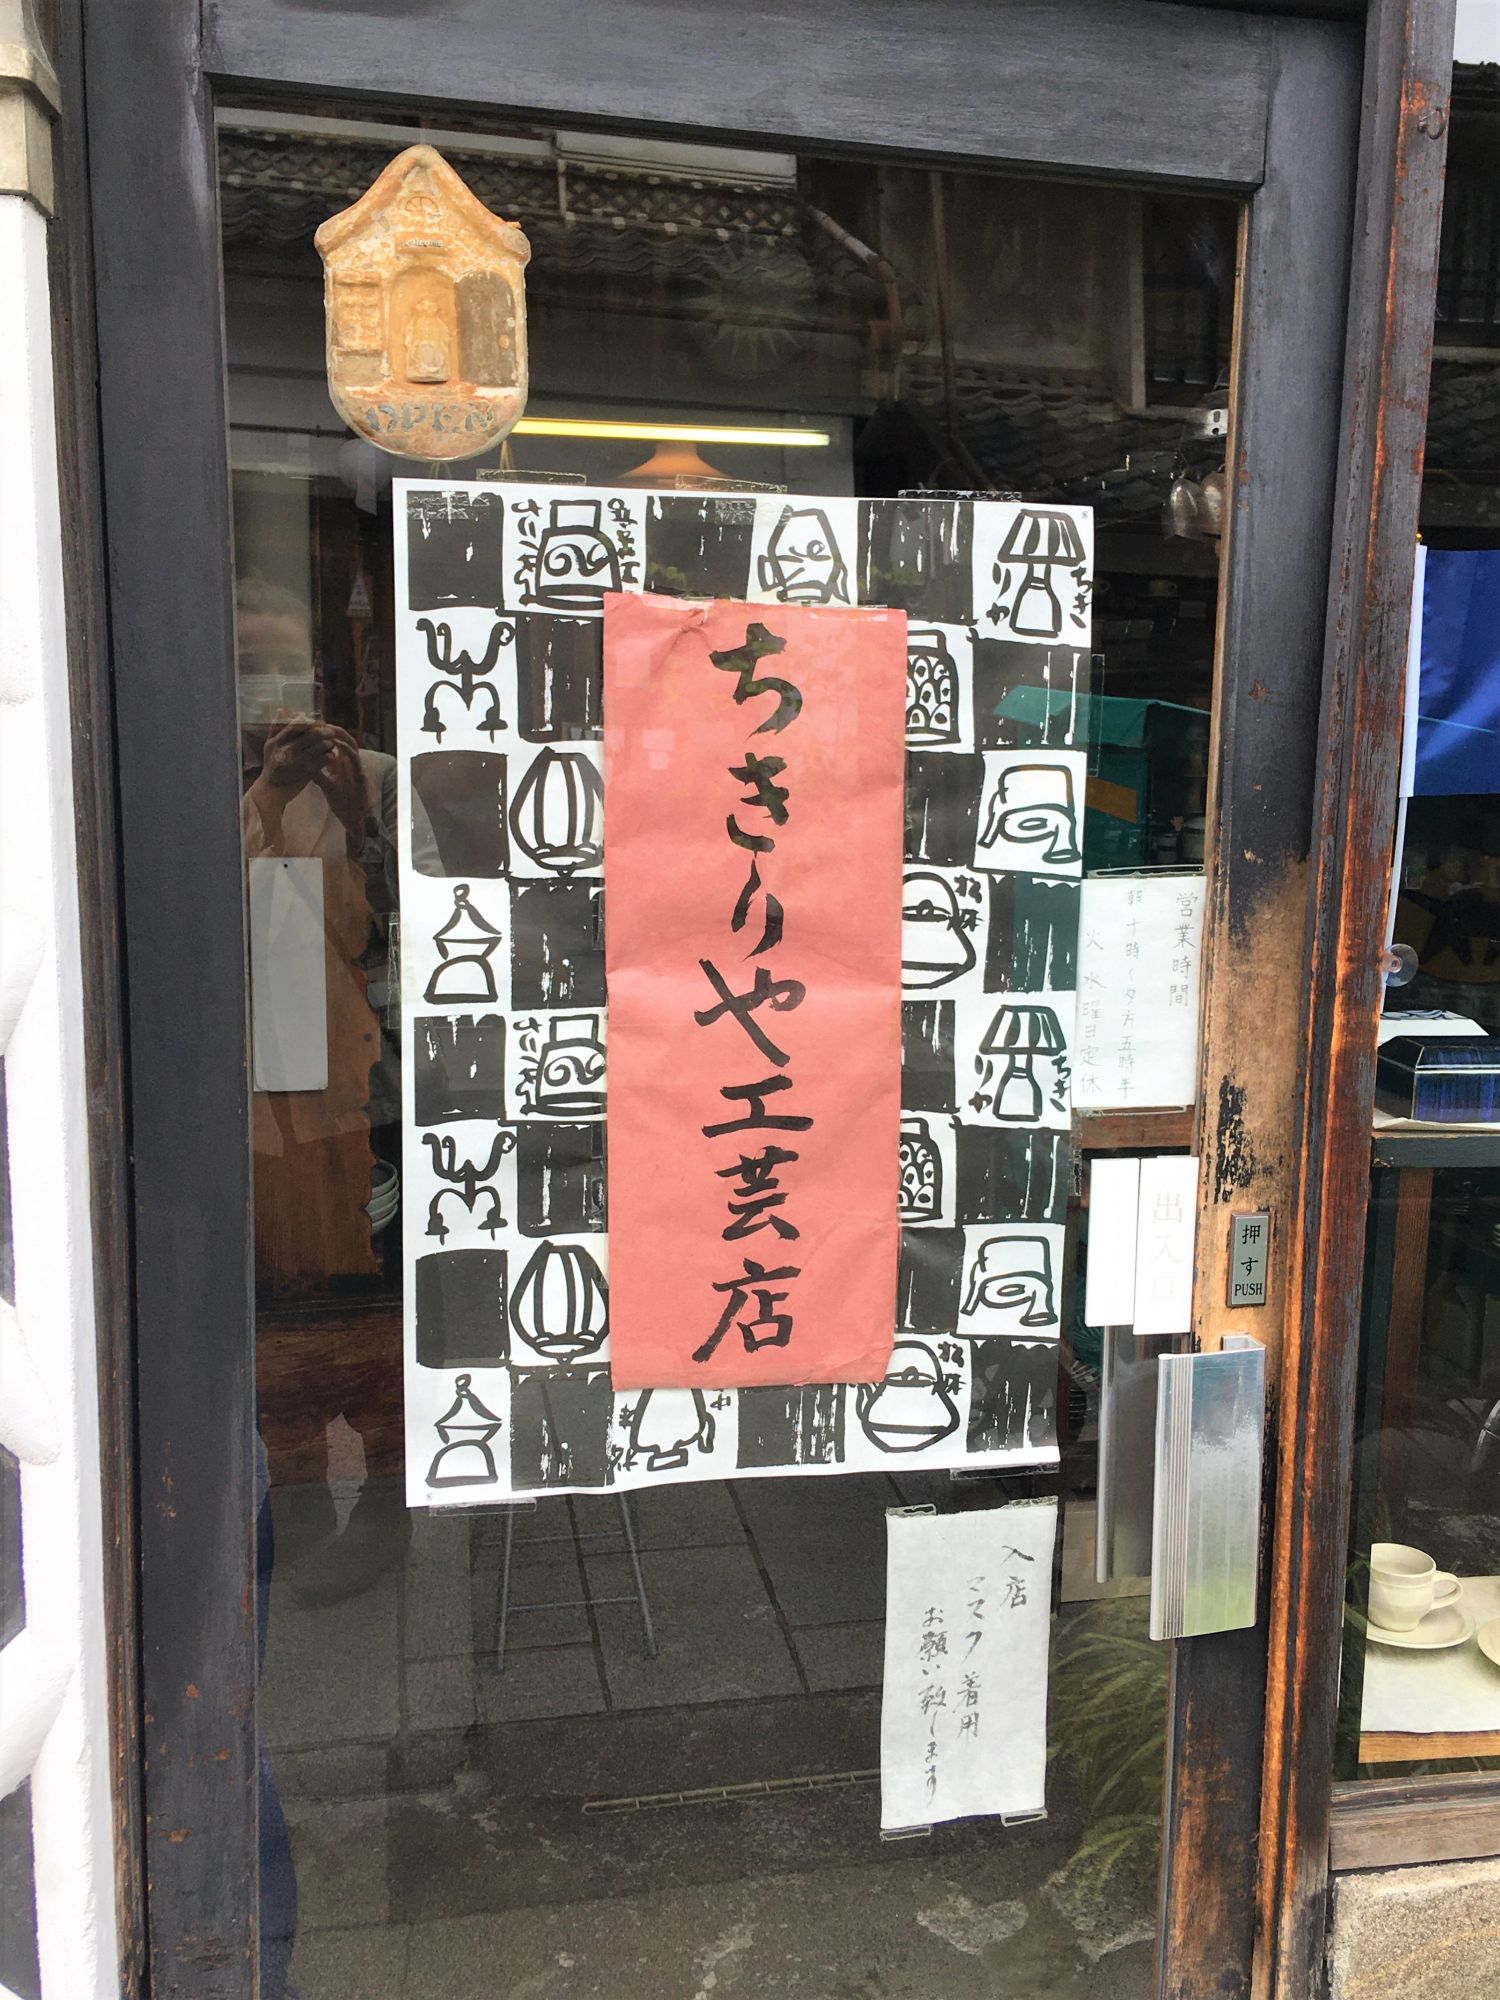 OPEN
ちきりや
ちきりや工芸店
松本
営業時間
朝十時〜夕方五時半
火水曜日定休
ちきりや
出入口
押す
PUSH
松本
入店
マスク着用
お願い致します